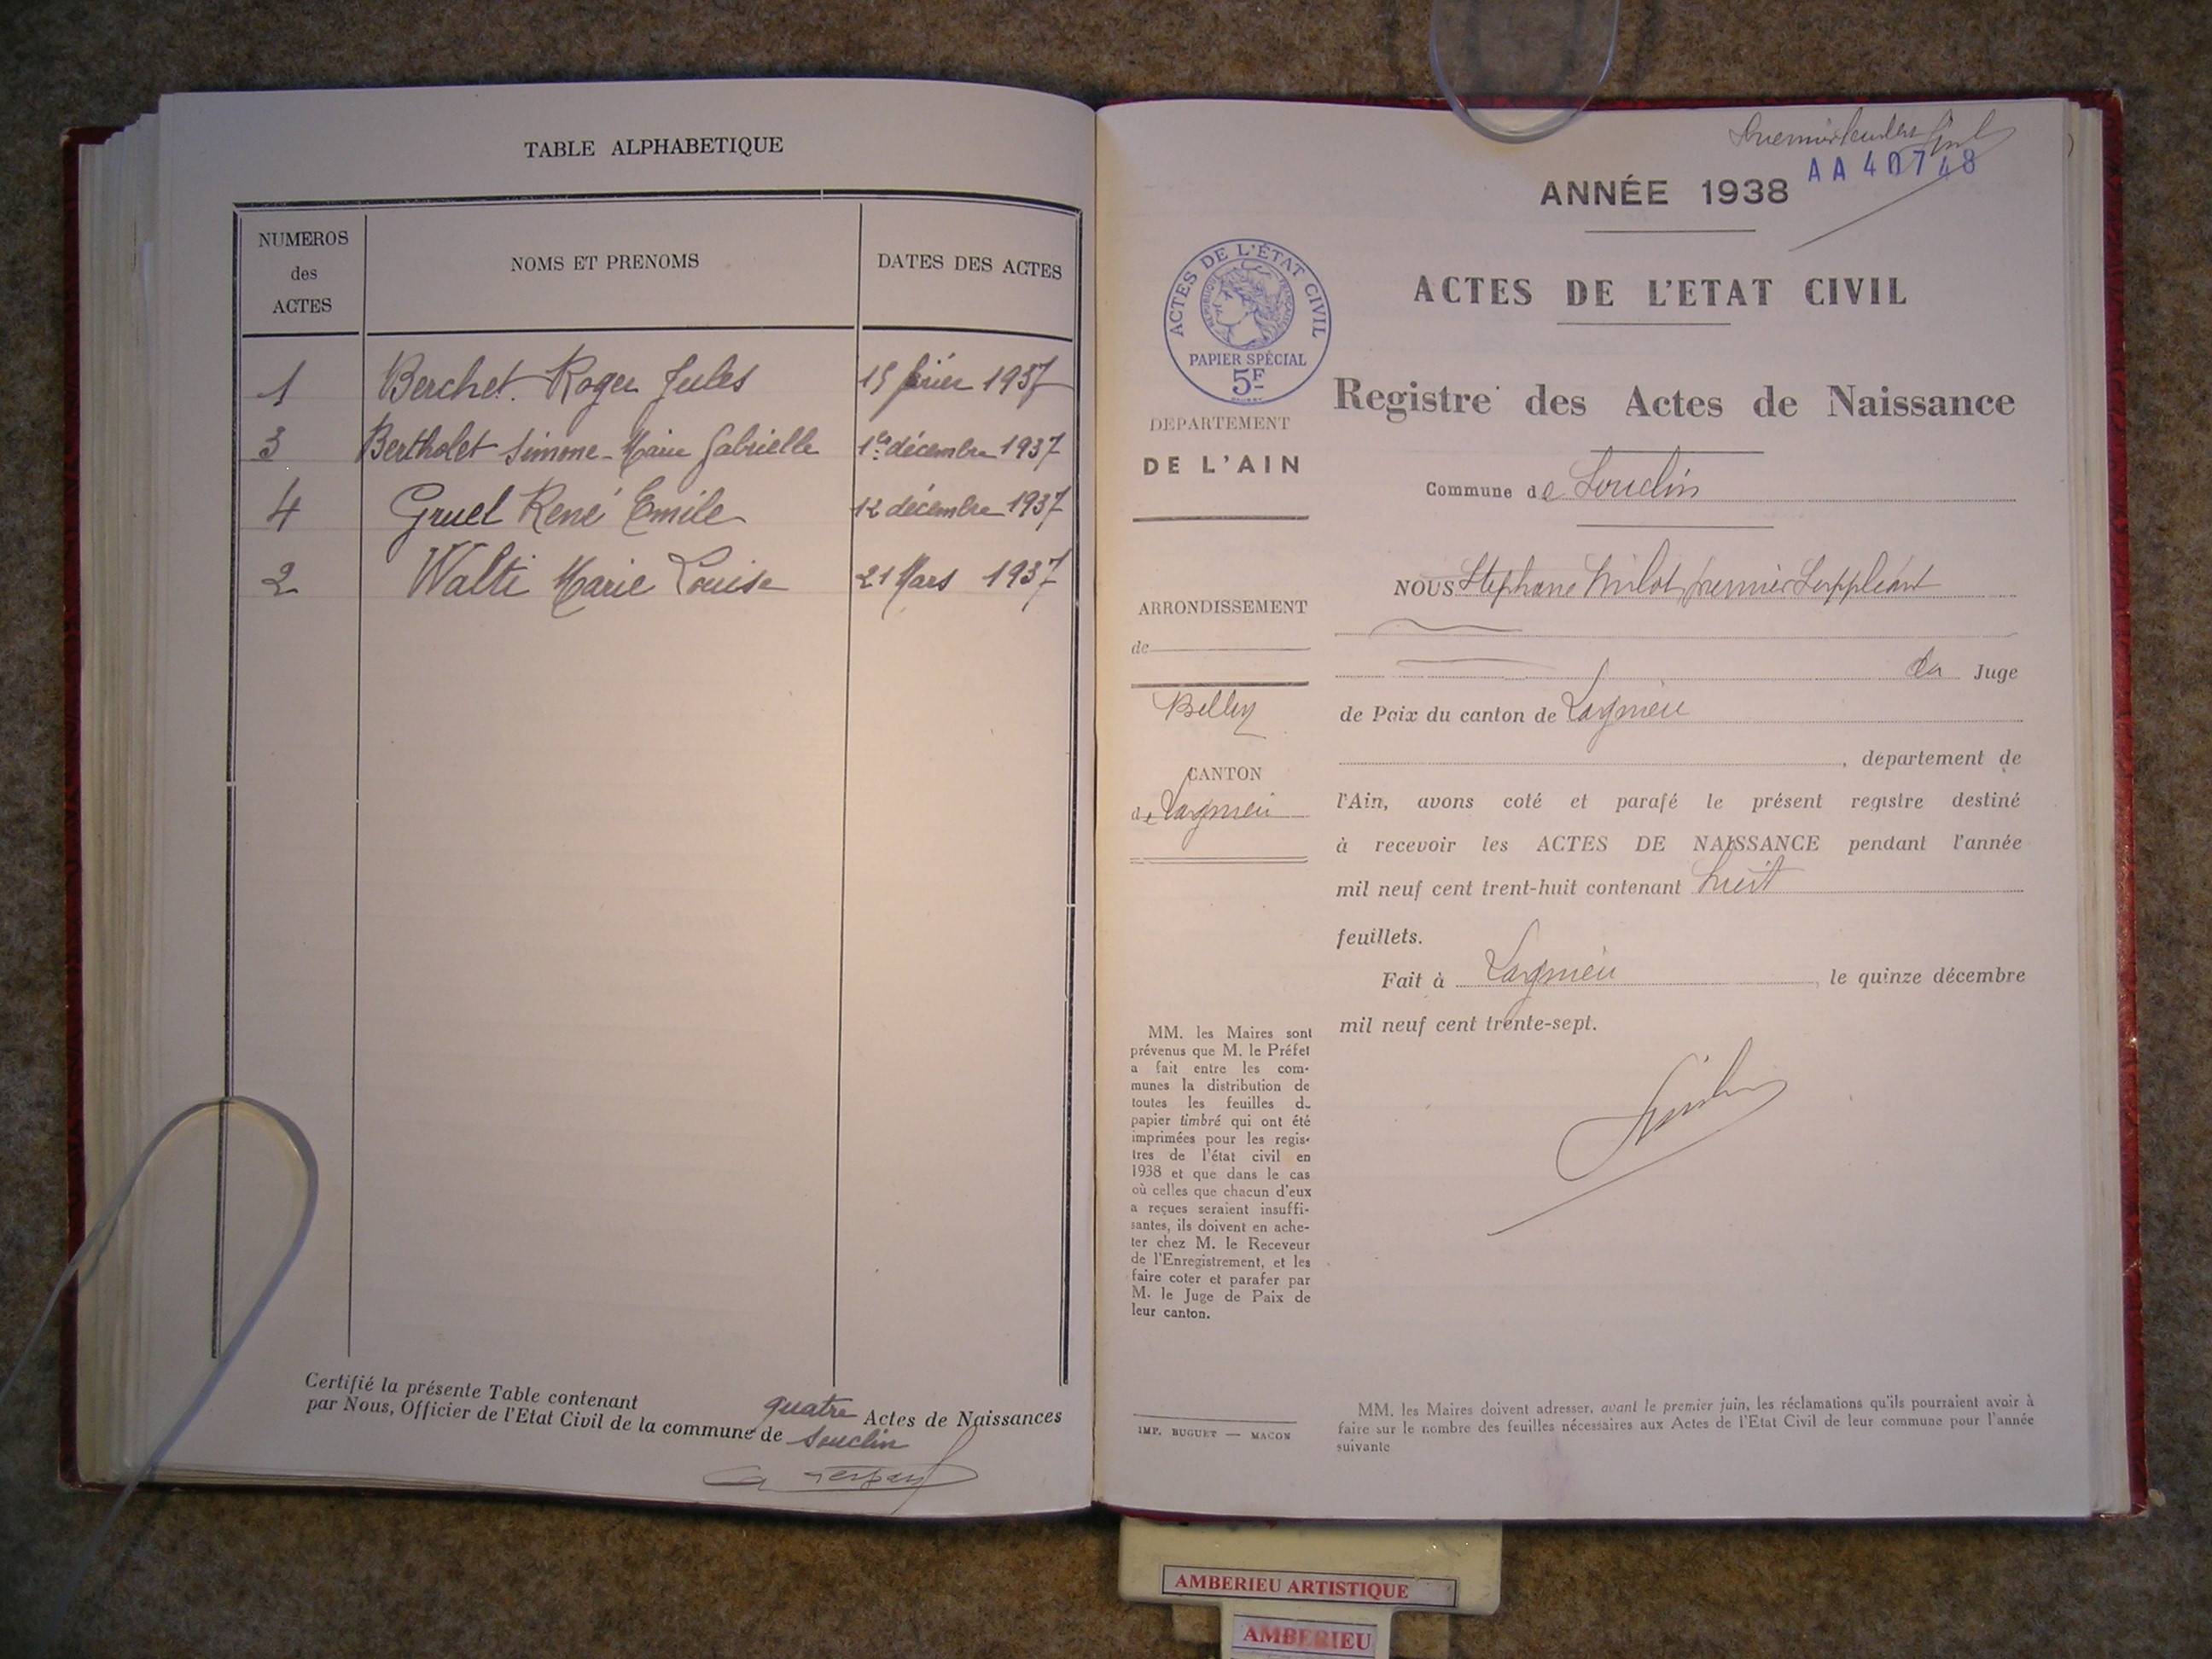 TABLE ALPHABETIQUE
NUMEROS des ACTES
NOMS ET PRENOMS
DATES DES ACTES
1 Berchet Roger Jules 15 1937
3 Bertholet Simone-Marie Gabrielle 1er décembre 1937
4 Gruel René Emile 12 décembre 1937
2 Walti Marie Louise 21 Mars 1937
Certifié la présente Table contenant quatre Actes de Naissances
par Nous, Officier de l'Etat Civil de la commune de Souclin
AA 40748
ANNÉE 1938
ACTES DE L'ETAT CIVIL
ACTES DE L'ÉTAT CIVIL
RÉPUBLIQUE FRANÇAISE
PAPIER SPÉCIAL
5F
Registre des Actes de Naissance
DEPARTEMENT
DE L'AIN
Commune de Souclin
ARRONDISSEMENT
de
Belley
CANTON
de Lagnieu
NOUS Stéphane Milot premier Suppléant
du Juge
de Paix du canton de Lagnieu
, département de
l'Ain, avons coté et parafé le présent registre destiné
à recevoir les ACTES DE NAISSANCE pendant l'année
mil neuf cent trent-huit contenant huit
feuillets.
Fait à Lagnieu, le quinze décembre
mil neuf cent trente-sept.
MM. les Maires sont
prévenus que M. le Préfet
a fait entre les com-
munes la distribution de
toutes les feuilles de
papier timbré qui ont été
imprimées pour les regis-
tres de l'état civil en
1938 et que dans le cas
où celles que chacun d'eux
a reçues seraient insuffi-
santes, ils doivent en ache-
ter chez M. le Receveur
de l'Enregistrement, et les
faire coter et parafer par
M. le Juge de Paix de
leur canton.
IMP. BUGUET — MACON
MM. les Maires doivent adresser, avant le premier juin, les réclamations qu'ils pourraient avoir à
faire sur le nombre des feuilles nécessaires aux Actes de l'Etat Civil de leur commune pour l'année
suivante
AMBERIEU ARTISTIQUE
AMBERIEU